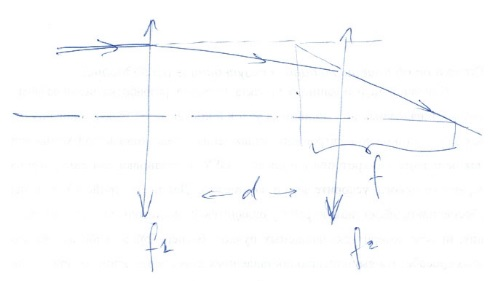 d
f
f₁
f₂